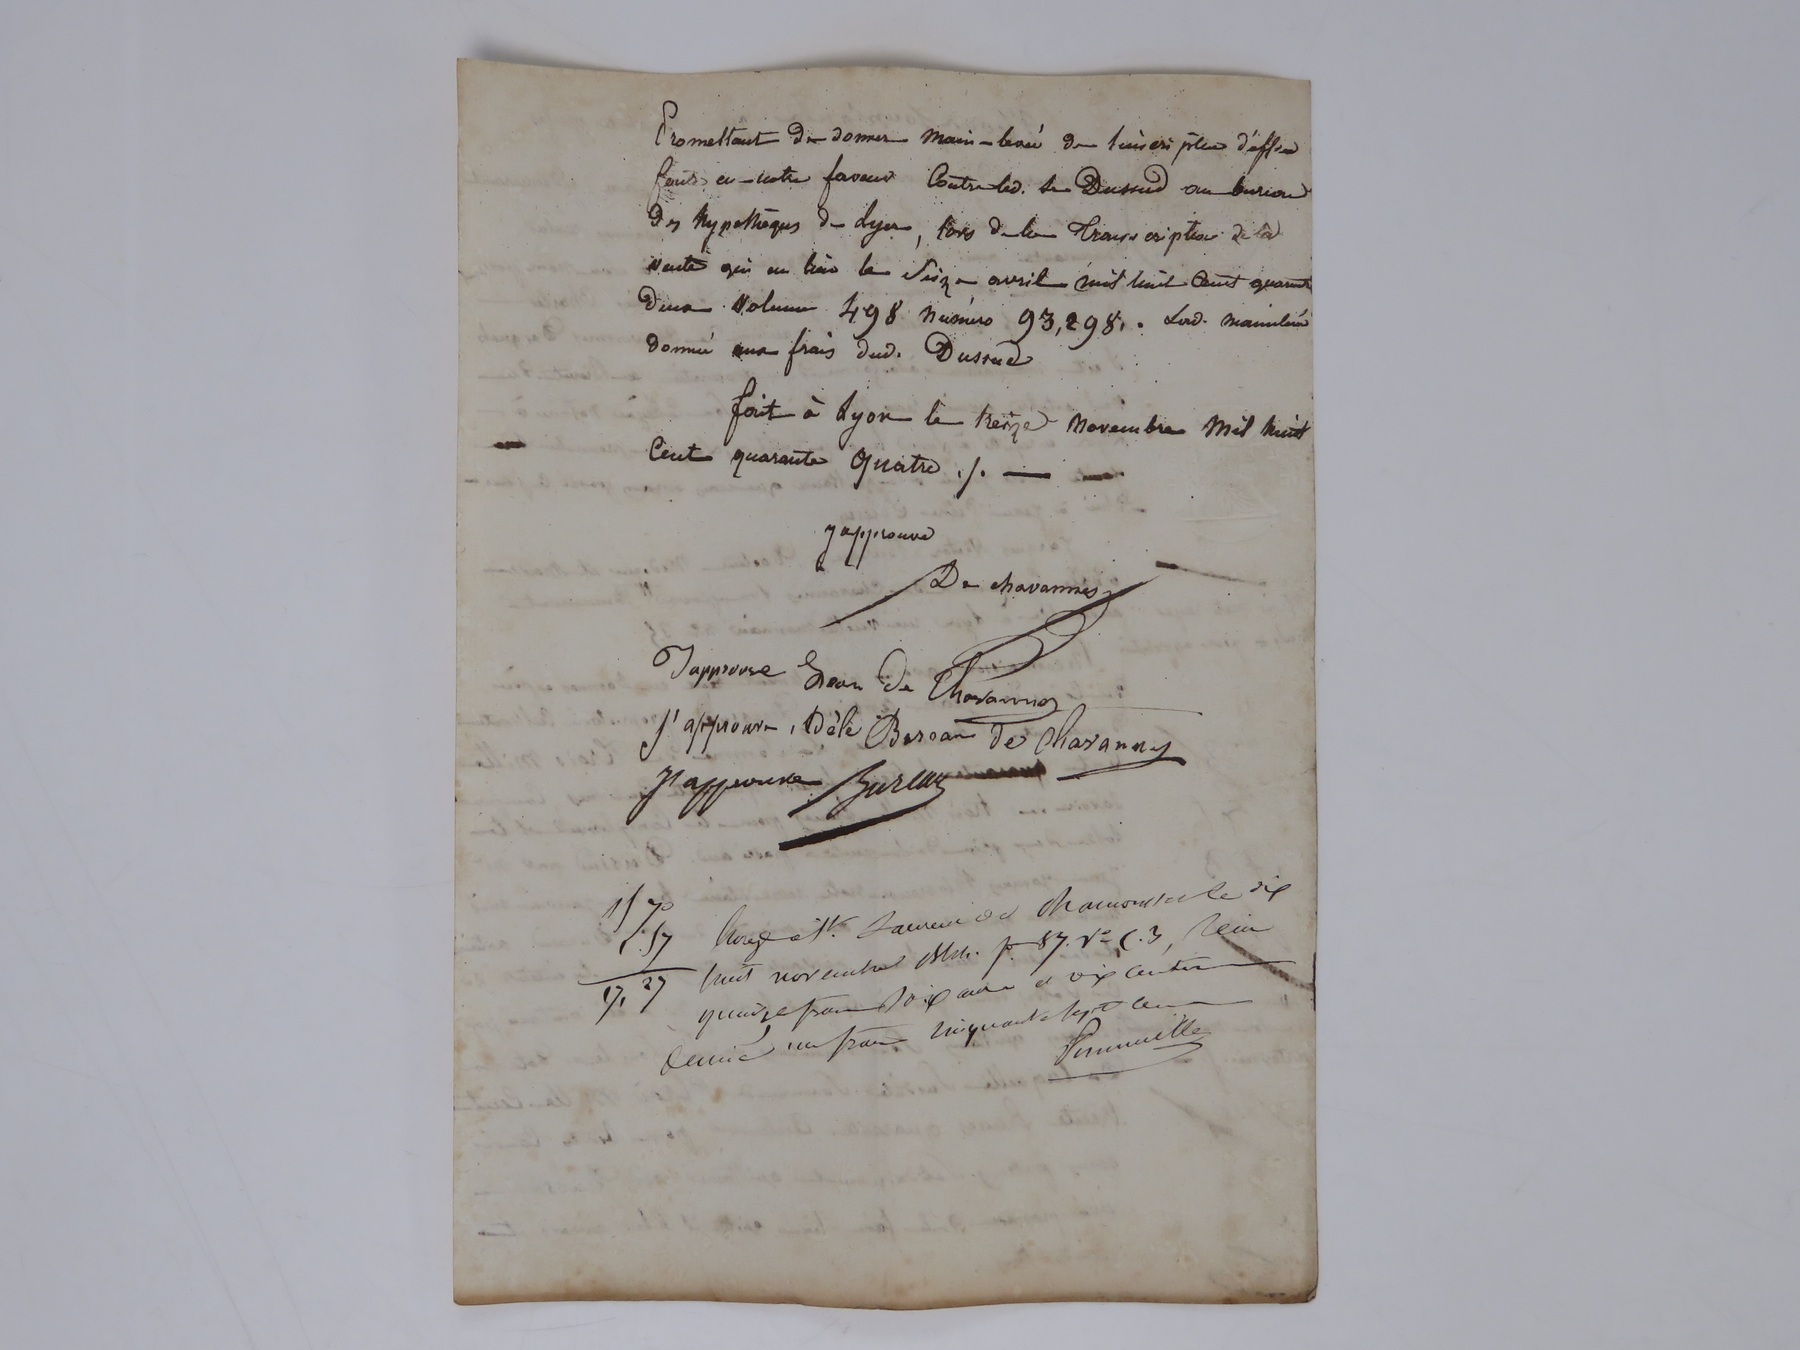 Promettant de donner main-levée de l'inscription d'office
faite en notre faveur Contre led. sr Dussud au bureau
des hypothèques de Lyon, lors de la transcription de la
vente qui eu lieu le Seize avril mil huit Cent quarante
deux Volume 498 numéro 93,298. Lad. mainlevée
donnée aux frais dud. Dussud
fait à Lyon le treize Novembre Mil huit
Cent quarante quatre ./. —
J'approuve
De chavannes
J'approuve Jean De Chavannes
J'approuve Adèle Bureau De Chavannes
J'approuve Bureau
15 70
1.57
17, 27
huit novembre 1844. f° 87. V° C. 3, Reçu
quinze francs soixante et dix centimes
décime un franc cinquante sept cent